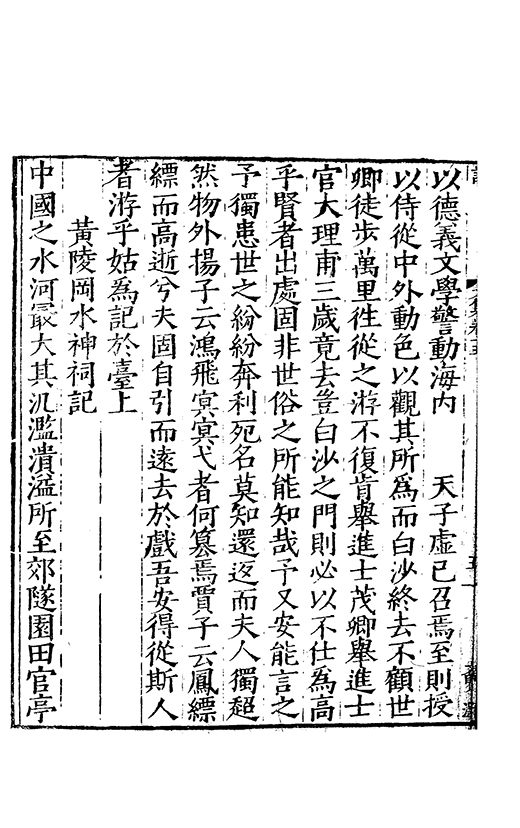 以德義文學警動海内　天子虛已召焉至則授
以侍從中外動色以觀其所為而白沙終去不顧世
卿徒步萬里徃從之游不復肯舉進士茂卿舉進士
官大理甫三歲竟去登白沙之門則必以不仕為高
乎賢者出處固非世俗之所能知哉予又安能言之
予獨患世之紛紛奔利死名莫知還返而夫人獨超
然物外揚子云鴻飛冥冥弋者何篡焉賈子云鳳縹
縹而高逝兮夫固自引而遠去於戲吾安得從斯人
者游乎姑為記於臺上
黃陵岡水神祠記
中國之水河最大其汎濫潰溢所至郊隧園田官亭